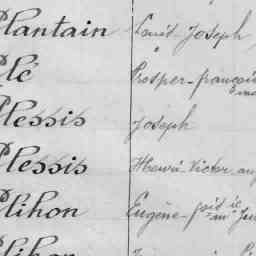 Plantain Louis Joseph
Plé Prosper-françois
Plessis Joseph
Plessis Henri-Victor
Plihon Eugène
Plihon